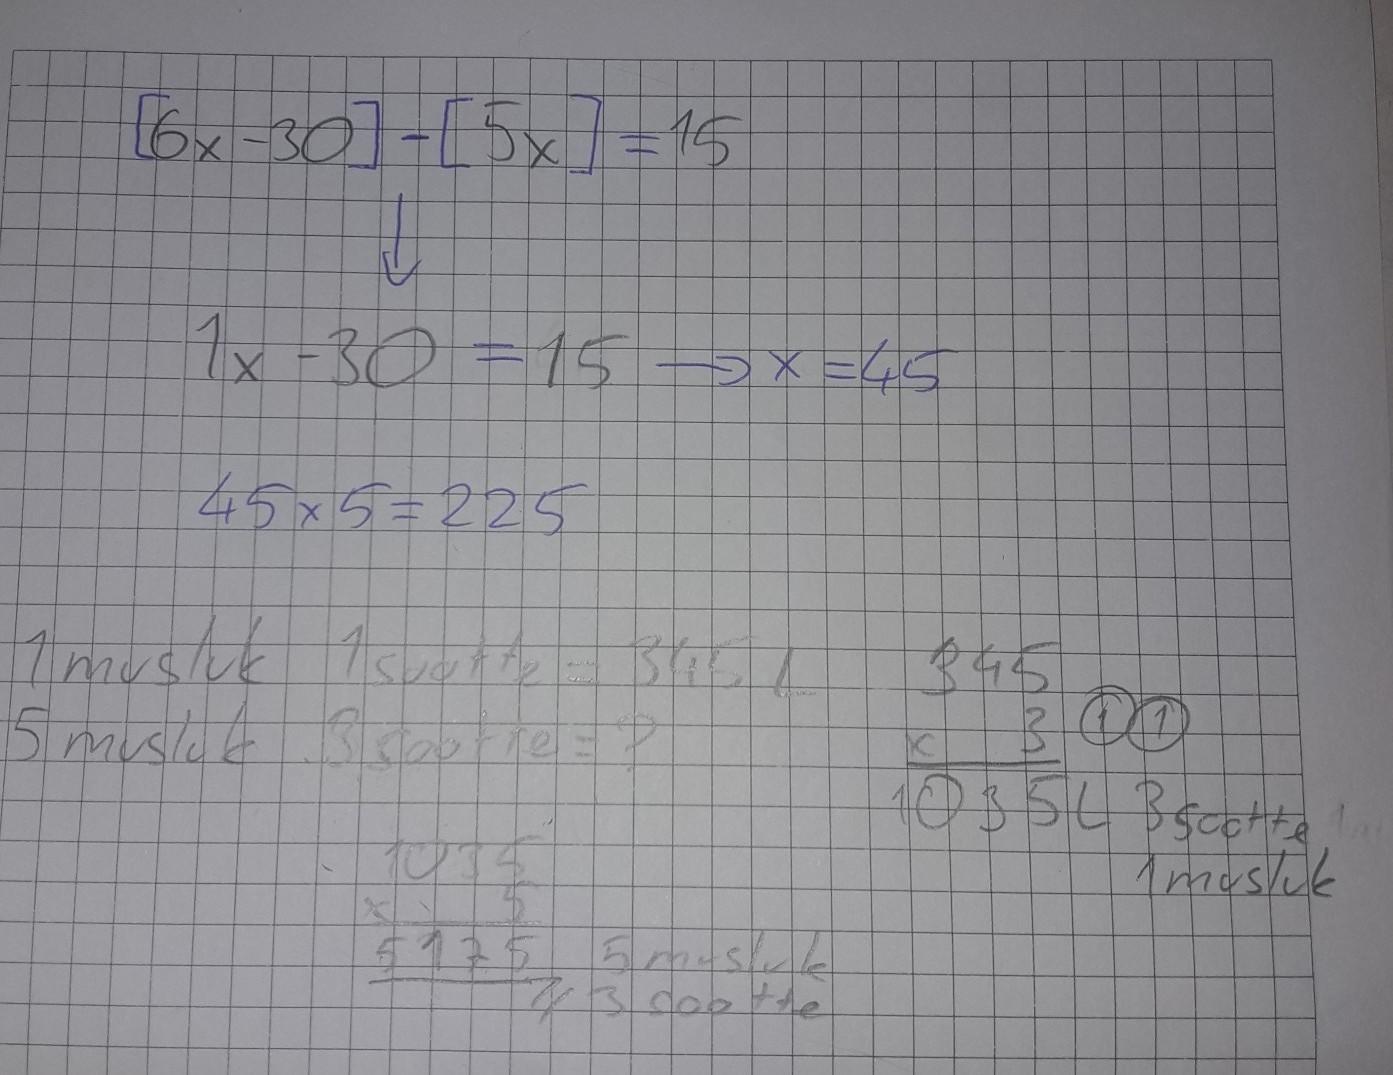 [6x-30]-[5x]=15
↓
1x-30=15→x=45
45x5=225
1 musluk 1 saatte = 345 L
5 musluk 3 saatte = ?
345
x 3 ① ①
1035 L 3 saatte
1 musluk
1035
x 5
5175 5 musluk
3 saatte